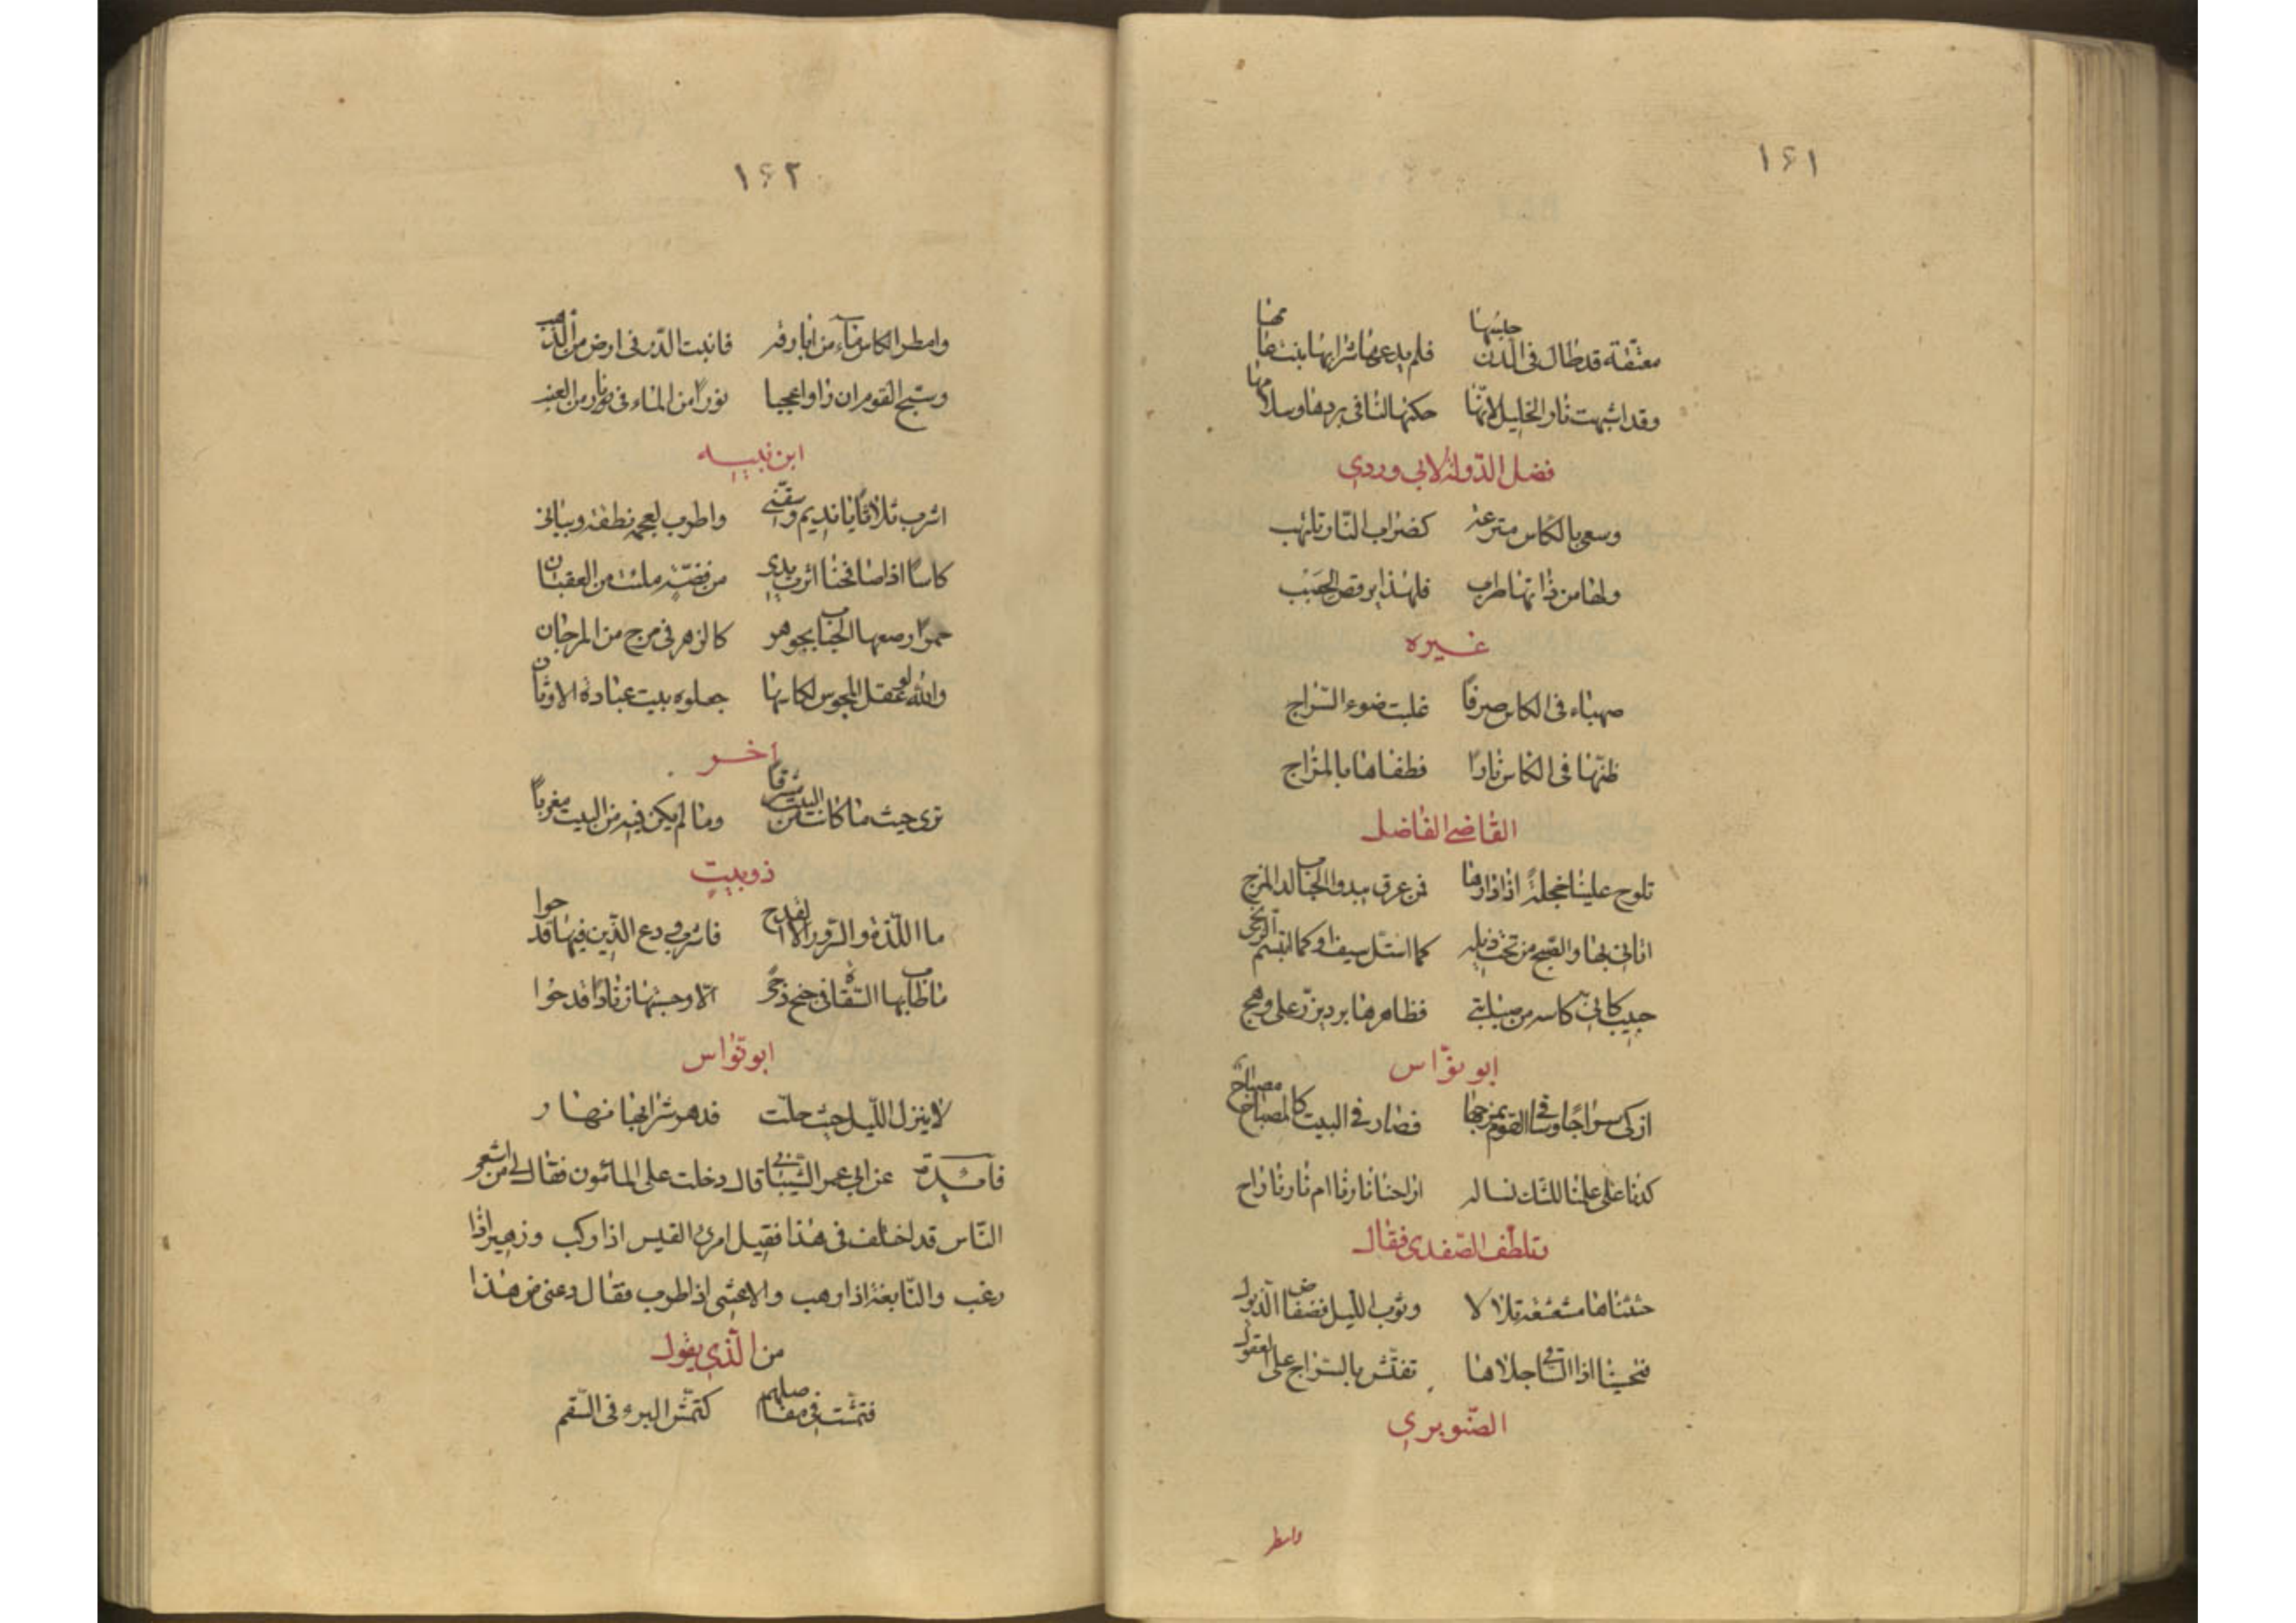 ١٤١
معتقة قد طال فى الدن حبسها فلم يدعها شرابها بنت عامها
وقد اشبهت نار الخليل لانها حكتها لنا فى بردها وسلامها
فضل الدولة لابى وردى
وسعى بالكاس مترعة كضرام النار تلتهب
ولها من ذاتها طرب فلهذا يرقص الحبب
غيره
صهباء فى الكاس صرفا غلبت ضوء السراج
ظنها فى الكاس نارا فطفاها بالمزاج
القاضى الفاضل
تلوح علينا خجلة اذا دارها فمن عرق يبدو الحباب لدالمزج
اتانى بها والصبح من تحت ذيله كما استل سيف او كما ابتسم الزنجى
كاسه من فظاهرها برد يزر على وهج
ابو نواس
ازكى سراجا وساقى القوم يمزجها فصار فى البيت كالمصباح مصباح
كدنا على علمنا للشك نساله اراحنا نارنا ام نارنا راح
وتلطف الصفدى فقال
حثثناها مشعشعة تلالا وثوب الليل فضفاض الذيول
فتحسبنا اذا الساقى جلاها تفتش بالسراج على العقول
الصنوبرى
وامطر
١٤٢
وامطر الكاس ماء من ابارقه فانبت الدر فى ارض من الذهب
وسبح القوم ان راوا عجبا نورا من الماء فى نار من العنب
ابن نبيه
اشرب ثلاثا يا نديم وسقنى واطرب لعجمة نطقه وبيانى
كاسا اذا صافحتها اثرت يدى من فضة ملئت من العقيان
حمرا رصعها الحباب بجوهر كالزهر فى مرج من المرجان
والله لو عقل المجوس لكاسها جعلوه بيت عبادة الاوثان
اخر
ترى حيث ما كانت من البيت مشرقا وما لم يكن فيه من البيت مغربا
ذوبيت
ما اللذة والسرور الا القدح فاشرب ودع الذين فيها قدحوا
ما طاب بها السقاة فى جنح دجى الا وحسبتها زنادا قدحوا
ابو نواس
لا ينزل الليل حيث حلت فدهر شرابها نهار
فائدة عن ابى عمر الشيبانى قال دخلت على المائون فقال لى من اشعر
الناس قد اختلف فى هذا فقيل امرئ القيس اذا ركب وزهير اذا
رغب والنابغة اذا وهب والاعشى اذا طرب فقال دعنى من هذا
من الذى يقول
فتمشت فى مفاصلهم كتمشى البرء فى السقم